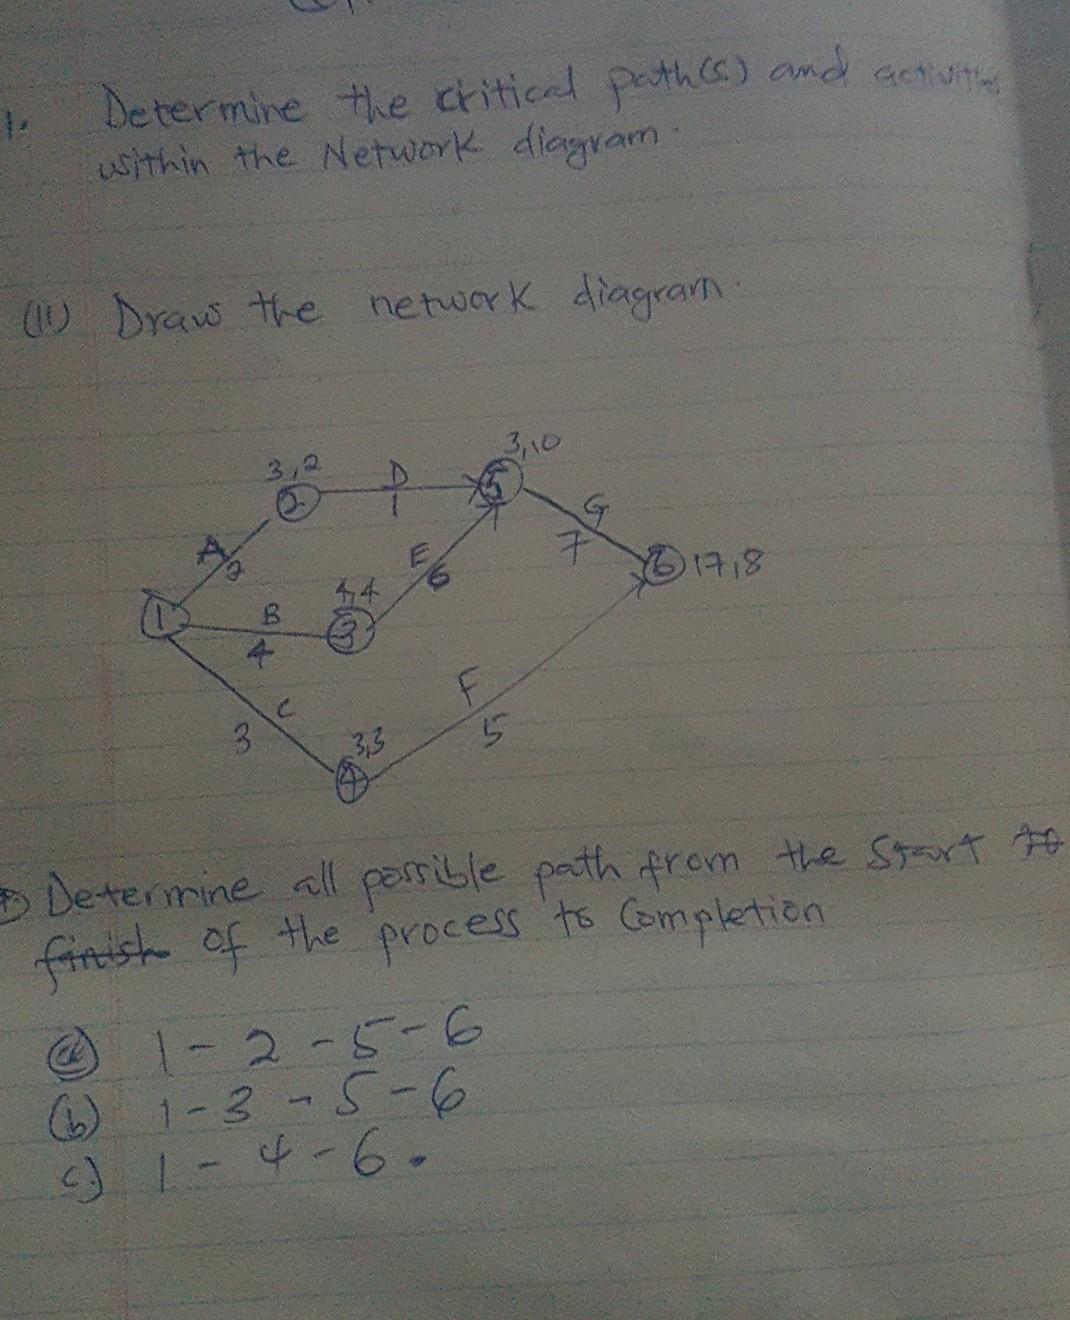 1. Determine the critical path(s) and activities
within the Network diagram.
(II) Draw the network diagram.
3,10
3,2 D
2 5
1 G
A 7 6 17,8
2 E
4,4 6
1 B 3
4
F
C
3 3,3 5
4
Determine all possible path from the start to
finish of the process to Completion
(a) 1 - 2 - 5 - 6
(b) 1 - 3 - 5 - 6
c) 1 - 4 - 6.